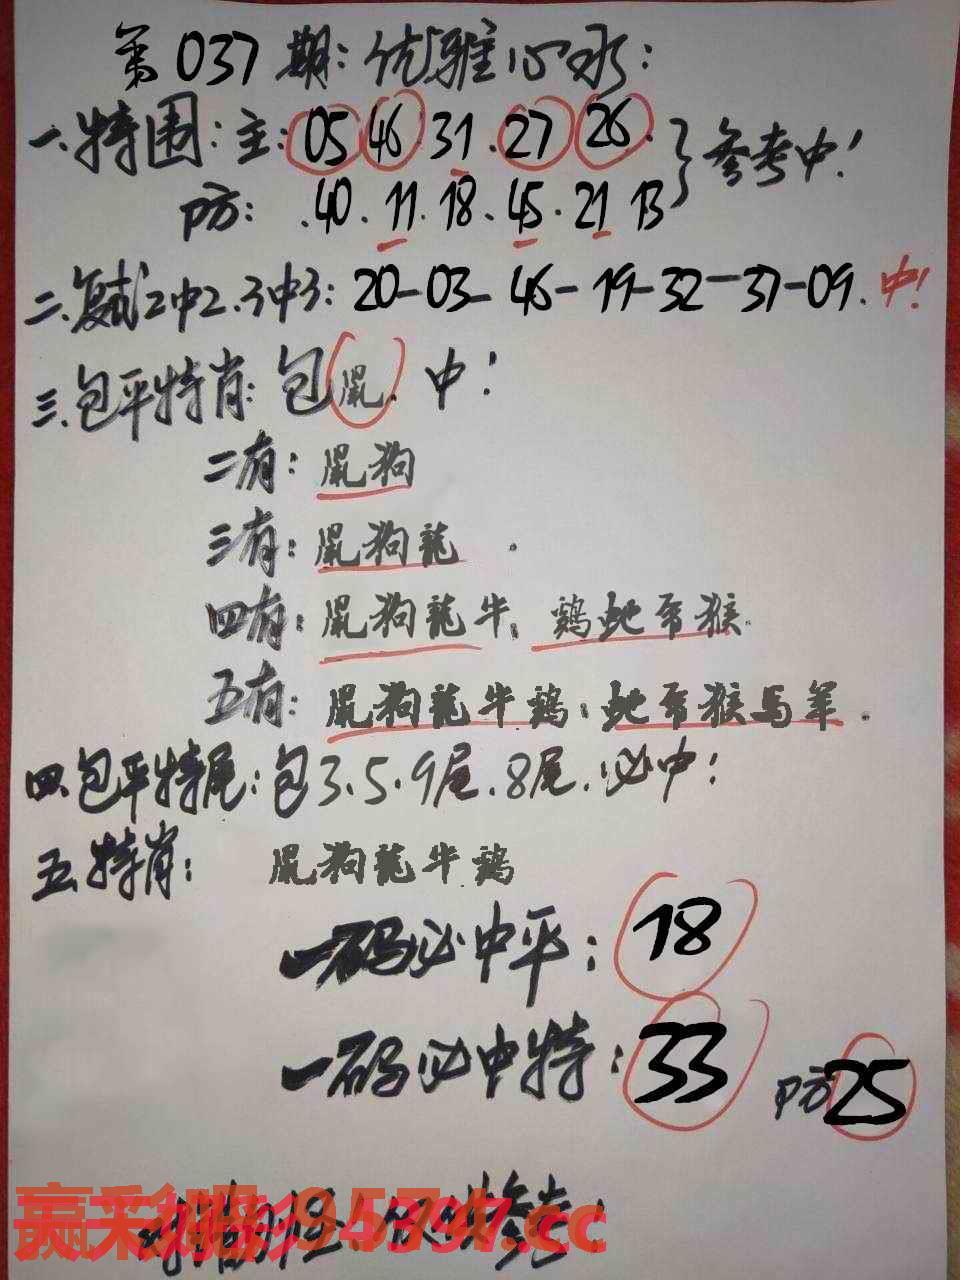 第037期:优雅心水:
一.特围:主:05.46.31.27.26.}参考中!
防:.40.11.18.45.21 13
二.复式2中2.3中3:20-03-46-19-32-37-09.中!
三.包平特肖:包鼠.中!
二有:鼠狗
三有:鼠狗龍.
四有:鼠狗龍牛.鷄蛇兔猴
五有:鼠狗龍牛鷄.蛇兔猴馬羊.
四.包平特尾:包3.5.9尾.8尾.必中!
五.特肖:鼠狗龍牛鷄
一码必中平:18
一码必中特:33 防25
赢彩